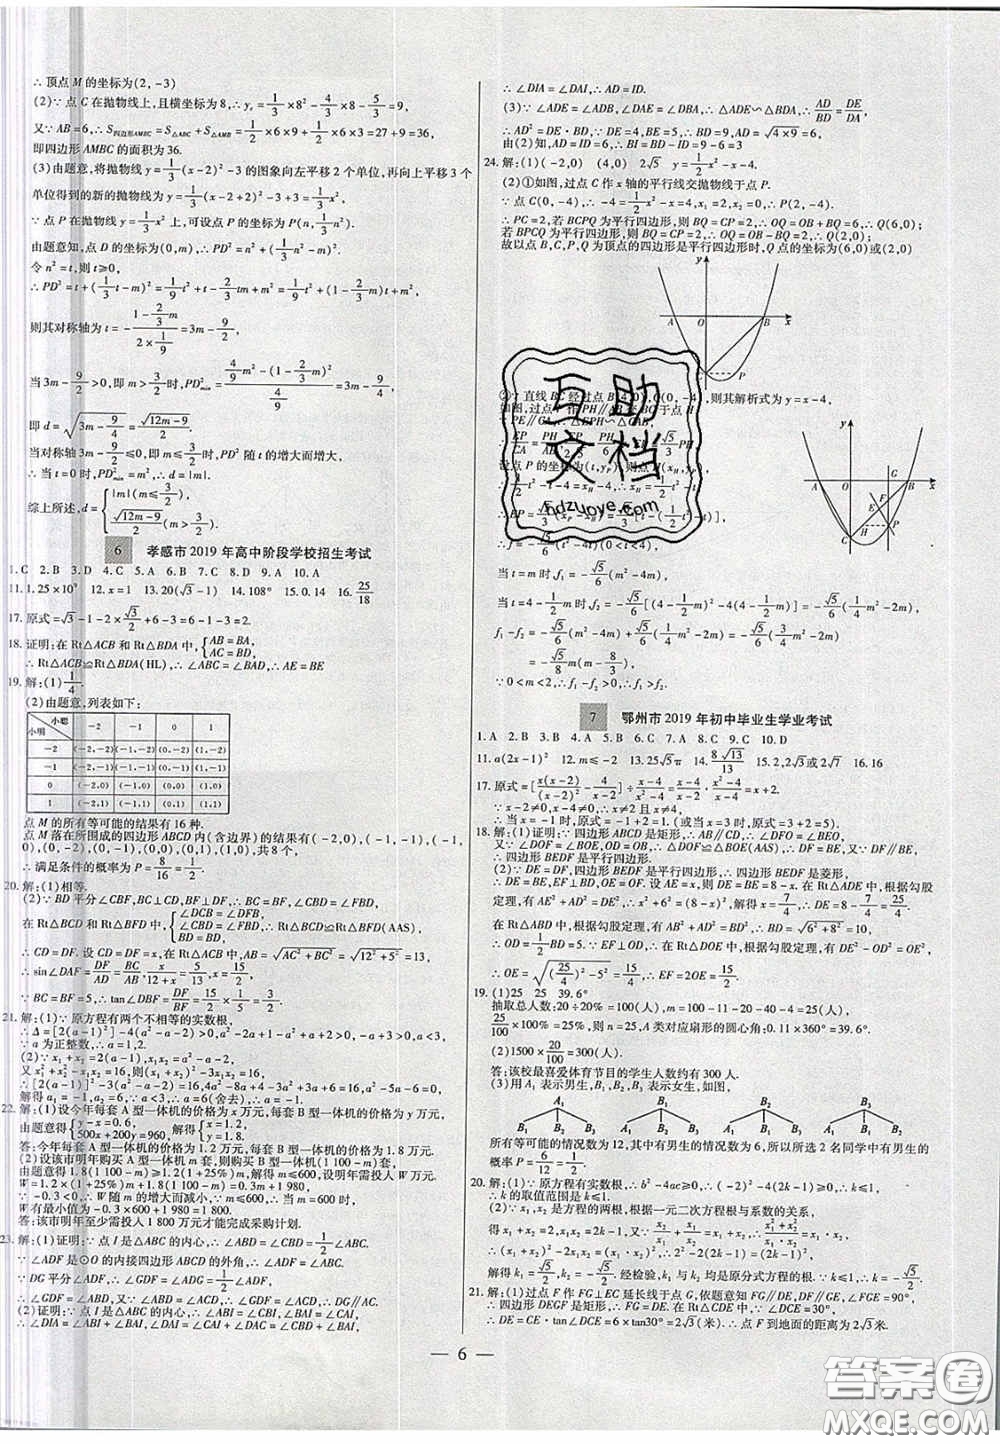 ∴顶点M的坐标为(2,-3)
(2)∵点C在抛物线上,且横坐标为8,∴y_c=1/3×8²-4/3×8-5/3=9,
又∵AB=6,∴S四边形AMBC=S△ABC+S△AMB=1/2×6×9+1/2×6×3=27+9=36,
即四边形AMBC的面积为36.
(3)由题意,将抛物线y=1/3(x-2)²-3的图象向左平移2个单位,再向上平移3个
单位得到的新的抛物线的解析式为y=1/3(x-2+2)²-3+3=1/3x².
∵点P在抛物线y=1/3x²上,可设点P的坐标为P(n,1/3n²)
由题意知,点D的坐标为(0,m),∴PD²=n²+(1/3n²-m)².
令n²=t,则t≥0,
∴PD²=t+(1/3t-m)²=1/9t²+t-2/3mt+m²=1/9t²+(1-2/3m)t+m²,
则其对称轴为t=-(1-2/3m)/(2×1/9)=3m-9/2
当3m-9/2>0,即m>3/2时,PD²min=(4/9m²-(1-2/3m)²)/(4/9)
即d=√(3m-9/4)=√(12m-9)/2.
当对称轴3m-9/2≤0,即m≤3/2时,PD²随t的增大而增大,
∴当t=0时,PD²min=m²,∴d=|m|(m≤3/2)
综上所述,d={|m|(m≤3/2) √(12m-9)/2(m>3/2).
6 孝感市2019年高中阶段学校招生考试
1.C 2.B 3.D 4.C 5.A 6.B 7.C 8.D 9.B 10.A
11.1.25×10⁹ 12.x=1 13.20(√3-1) 14.108° 15.0.14 16.25/18
17.原式=√3-1-2×√3/2+6-3=6-1-3=2.
18.证明:在Rt△ACB和Rt△BDA中,{AB=BA, AC=BD,
∴Rt△ACB≌Rt△BDA(HL),∴∠ABC=∠BAD,∴AE=BE
19.解:(1)1/4.
(2)由题意,列表如下:
小聪 小明 -2 -1 0 1
-2 (-2,-2) (-1,-2) (0,-2) (1,-2)
-1 (-2,-1) (-1,-1) (0,-1) (1,-1)
0 (-2,0) (-1,0) (0,0) (1,0)
1 (-2,1) (-1,1) (0,1) (1,1)
点M的所有等可能的结果有16种.
点M落在所围成的四边形ABCD内(含边界)的结果有(-2,0),(-1,-1),(-1,
0),(0,-2),(0,-1),(0,0),(0,1),(1,0),共8个,
∴满足条件的概率为P=8/16=1/2.
20.解:(1)相等.
(2)∵BD平分∠CBF,BC⊥CD,BF⊥DF,∴BC=BF,∠CBD=∠FBD,
在Rt△BCD和Rt△BFD中,{∠DCB=∠DFB, ∠CBD=∠FBD, BD=BD, ∴Rt△BCD≌Rt△BFD(AAS),
∴CD=DF.设CD=DF=x,在Rt△ACB中,AB=√(AC²+BC²)=√(12²+5²)=13,
∴sin∠DAF=DF/AD=BC/AB,即x/(12+x)=5/13,∴x=15/2.
∵BC=BF=5,∴tan∠DBF=DF/BF=15/2×1/5=3/2.
21.解:(1)∵原方程有两个不相等的实数根,
∴Δ=[2(a-1)²]-4(a²-a-2)>0,∴4a²-2a+1-a²+a+2>0,∴a<3.
∵a为正整数,∴a=1,2.
(2)∵x₁+x₂=2(a-1),x₁x₂=a²-a-2,
又x₁²+x₂²-x₁x₂=16,则(x₁+x₂)²-3x₁x₂=16,
∴[2(a-1)]²-3(a²-a-2)=16,4a²-8a+4-3a²+3a+6=16,
∴a²-5a-6=0,∴a=6(舍去),∴a=-1.
22.解:(1)设今年每套A型一体机的价格为x万元,每套B型一体机的价格为y万元,
由题意得{y-x=0.6, 500x+200y=960, 解得{x=1.2, y=1.8.
答:今年每套A型一体机的价格为1.2万元,每套B型一体机的价格为1.8万元.
(2)设该市明年购买A型一体机m套,则购买B型一体机(1 100-m)套,
由题意得1.8(1 100-m)≥1.2(1+25%)m,解得m≤600,设明年需投入W万元,
W=1.2×(1+25%)m+1.8(1 100-m)=-0.3m+1980,
∵-0.3<0,∴W随m的增大而减小,∵m≤600,∴当m=600时,
W有最小值为-0.3×600+1 980=1 800.
答:该市明年至少需投入1 800万元才能完成采购计划.
23.解:(1)证明:∵点I是△ABC的内心,∴∠ABD=∠CBD=1/2∠CBA,
∵∠ADF是⊙O的内接四边形ADBC的外角,∴∠ADF=∠ABC,
∵DG平分∠ADF,∴∠GDF=∠ADG=1/2∠ADF,
又∵∠DAC=∠DBC,∴∠GDF=∠DAC,∴DG∥AC.
(2)证明:∵点I是△ABC的内心,∴∠ABI=∠CBI,∠CAI=∠BAI,
∴∠DIA=∠ABI+∠BAI,∠DAI=∠DAC+∠CAI=∠CBD+∠BAI,
∴∠DIA=∠DAI,∴AD=ID.
(3)∵∠ADE=∠BDA,∠DAE=∠DBA,∴△ADE∽△BDA,∴AD/BD=DE/DA,
∴AD²=DE·BD,∵DE=4,BE=5,∴BD=9,∴AD=√(4×9)=6,
由(2)知,AD=ID=6,∴BI=BD-ID=9-6=3
24.解:(1)(-2,0) (4,0) 2√5 y=1/2x²-x-4
(2)①如图,过点C作x轴的平行线交抛物线于点P,
∵点C(0,-4),∴-4=1/2x²-x-4,x₁=2,x₂=0,∴P(2,-4),
∴PC=2,若BCPQ为平行四边形,则BQ=CP=2,∴OQ=OB+BQ=6,∴Q(6,0);
若BPCQ为平行四边形,则BQ=CP=2,∴OQ=OB-BQ=2,∴Q(2,0);
故以点B,C,P,Q为顶点的四边形是平行四边形时,Q点的坐标为(6,0)或(2,0)
y A O B x C P
,则其解析式为y=x-4,
y G A O B x F E C H P
当t=m时,f₁=-√5/6(m²-4m),
当t=4-m时f₂=-√5/6[(4-1/4m)²-4(4-1/4m)]=-√5/6(1/4m²-2m)
f₁-f₂=-√5/6(m²-4m)+√5/6(1/4m²-2m)=-√5/6[m(3/4m-2)]
=-√5/8m(m-8/3),
∵0<m<2,∴f₁-f₂>0,∴f₁>f₂.
7 鄂州市2019年初中毕业生学业考试
1.A 2.B 3.B 4.A 5.A 6.C 7.C 8.C 9.C 10.D
11.a(2x-1)² 12.m≤-2 13.25√5π 14.8√13/13 15.2,2√3或2√7 16.16
17.原式=[x(x-2)/(x-2)²-4/(x-2)]÷(x-4)/(x²-4)=(x-4)/(x-2)×(x²-4)/(x-4)=x+2.
∵x-2≠0,x-4≠0,∴x≠2且x≠4
∴当x=-1时,原式=-1+2=1.(或当x=3时,原式=3+2=5).
18.解:(1)证明:∵四边形ABCD是矩形,∴AB∥CD,∴∠DFO=∠BEO,
又∵∠DOF=∠BOE,OD=OB,∴△DOF≌△BOE(AAS),∴DF=BE,
∴四边形BEDF是平行四边形.
(2)∵DE=DF,四边形BEDF是平行四边形,∴四边形BEDF是菱形,
∴DE=BE,EF⊥BD,OE=OF.设AE=x,则DE=BE=8-x,在Rt△ADE中,根据勾股
定理,有AE²+AD²=DE²,∴x²+6²=(8-x)²,解得x=7/4,∴DE=8-7/4=25/4.
在Rt△ABD中,根据勾股定理,有AB²+AD²=BD²,∴BD=√(6²+8²)=10,
∴OD=1/2BD=5.∵EF⊥OD,在Rt△DOE中,根据勾股定理,有DE²-OD²=OE²,
∴OE=√((25/4)²-5²)=15/4,∴EF=2OE=15/2.
19.(1)25 25 39.6°
抽取总人数:20÷20%=100(人),m=100-11-20-40-4=25(人)
25/100×100%=25%,所以n=25,A类对应扇形的圆心角:0.11×360°=39.6°.
(2)1500×20/100=300(人).
答:该校最喜爱体育节目的学生人数约有300人.
(3)用A₁表示男生,B₁,B₂,B₃表示女生,如图,
A₁ B₁ B₂ B₃ B₁ A₁ B₂ B₃ B₂ A₁ B₁ B₃ B₃ A₁ B₁ B₂
所有等可能的情况数为12,其中有男生的情况数为6,所以所选2名同学中有男生的
概率P=6/12=1/2.
20.解:(1)∵原方程有实数根,∴b²-4ac≥0,∴(-2)²-4(2k-1)≥0,∴k≤1,
∴k的取值范围是k≤1.
(2)∵x₁,x₂是方程的两根,根据一元二次方程根与系数的关系,
得x₁+x₂=2,x₁·x₂=2k-1,又∵x₂/x₁+x₁/x₂=x₁·x₂,∴(x₁²+x₂²)/(x₁·x₂)=x₁·x₂,
∴(x₁+x₂)²-2x₁x₂=(x₁·x₂)²,∴2²-2(2k-1)=(2k-1)²,
解得k₁=√5/2,k₂=-√5/2.经检验,k₁与k₂均是原分式方程的根.∵k≤1,∴k=-√5/2
21.解:(1)过点F作FG⊥EC延长线于点G,依题意知FG∥DE,DF∥GE,∠FGE=90°,
∴四边形DEGF是矩形,∴FG=DE.在Rt△CDE中,∵∠DCE=30°,
∴DE=CE·tan∠DCE=6×tan30°=2√3(米),∴点F到地面的距离为2√3米.
互助文档
hdzuoye.com
— 6 —
答案圈
MXQE.COM